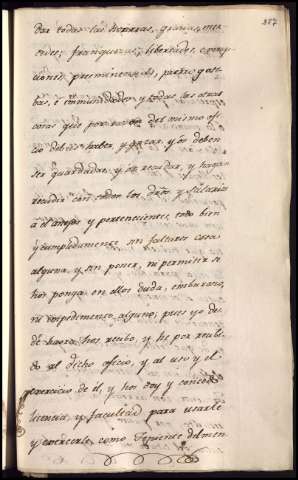 dar todas las Honrras, gracias, mer-
cedes, franquezas, libertades, exemp-
ciones, preeminencias, prerrogati-
bas, è ymmunidades y todas las otras
cosas que por razon del mismo ofi-
cio debeis haber, y gozar, y os deben
ser guardadas, y os recudan, y hagan
recudir con todos los dros, y salarios
a el anejos y pertenecientes, todo bien
y cumplidamente sin faltaros cosa
alguna, y sin poner, ni permitir se
hos ponga en ellos duda, embarazo,
ni impedimento alguno, pues yo des-
de haora hos recibo, y hè por recibi-
do al dicho oficio, y al uso y el
exercicio de èl, y hos doy y concedo
licencia, y facultad para usarle
y exercerle, como Teniente del men